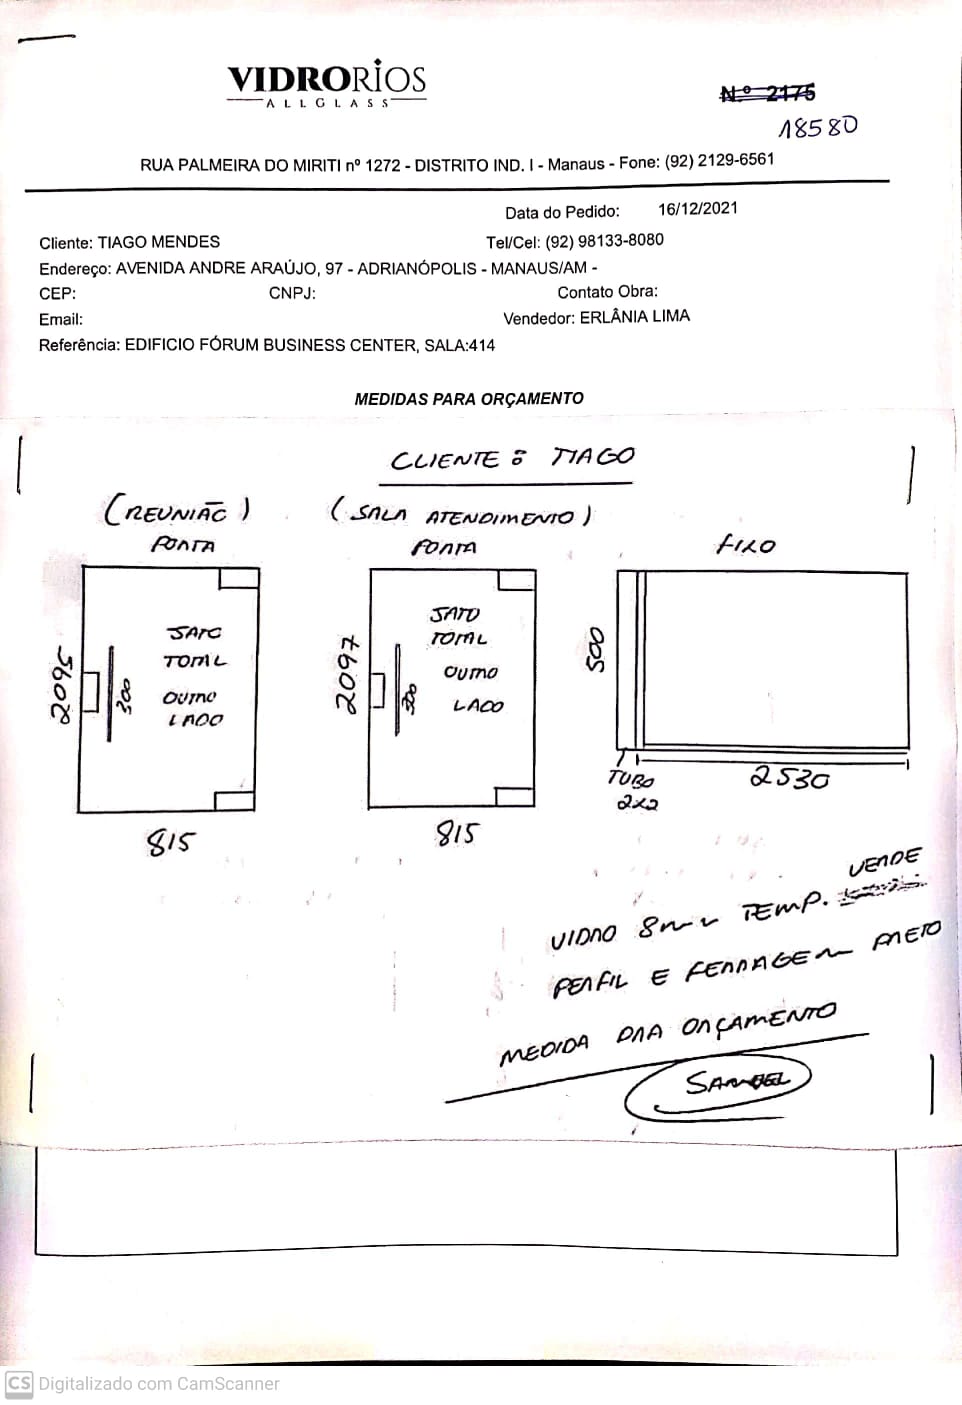 VIDRORIOS
ALLGLASS
Nº 2175
18580
RUA PALMEIRA DO MIRITI nº 1272 - DISTRITO IND. I - Manaus - Fone: (92) 2129-6561
Data do Pedido: 16/12/2021
Cliente: TIAGO MENDES Tel/Cel: (92) 98133-8080
Endereço: AVENIDA ANDRE ARAÚJO, 97 - ADRIANÓPOLIS - MANAUS/AM -
CEP: CNPJ: Contato Obra:
Email: Vendedor: ERLÂNIA LIMA
Referência: EDIFICIO FÓRUM BUSINESS CENTER, SALA:414
MEDIDAS PARA ORÇAMENTO
CLIENTE: TIAGO
(REUNIÃO) (SALA ATENDIMENTO)
PORTA PORTA FIXO
2095
300
OUTRO
LADO
815
2097
300
OUTRO
LADO
815
500
TUBO
2x2
2530
VERDE
VIDRO 8mm TEMP.
PERFIL E FERRAGEM PRETO
MEDIDA PRA ORÇAMENTO
SAMUEL
CS Digitalizado com CamScanner